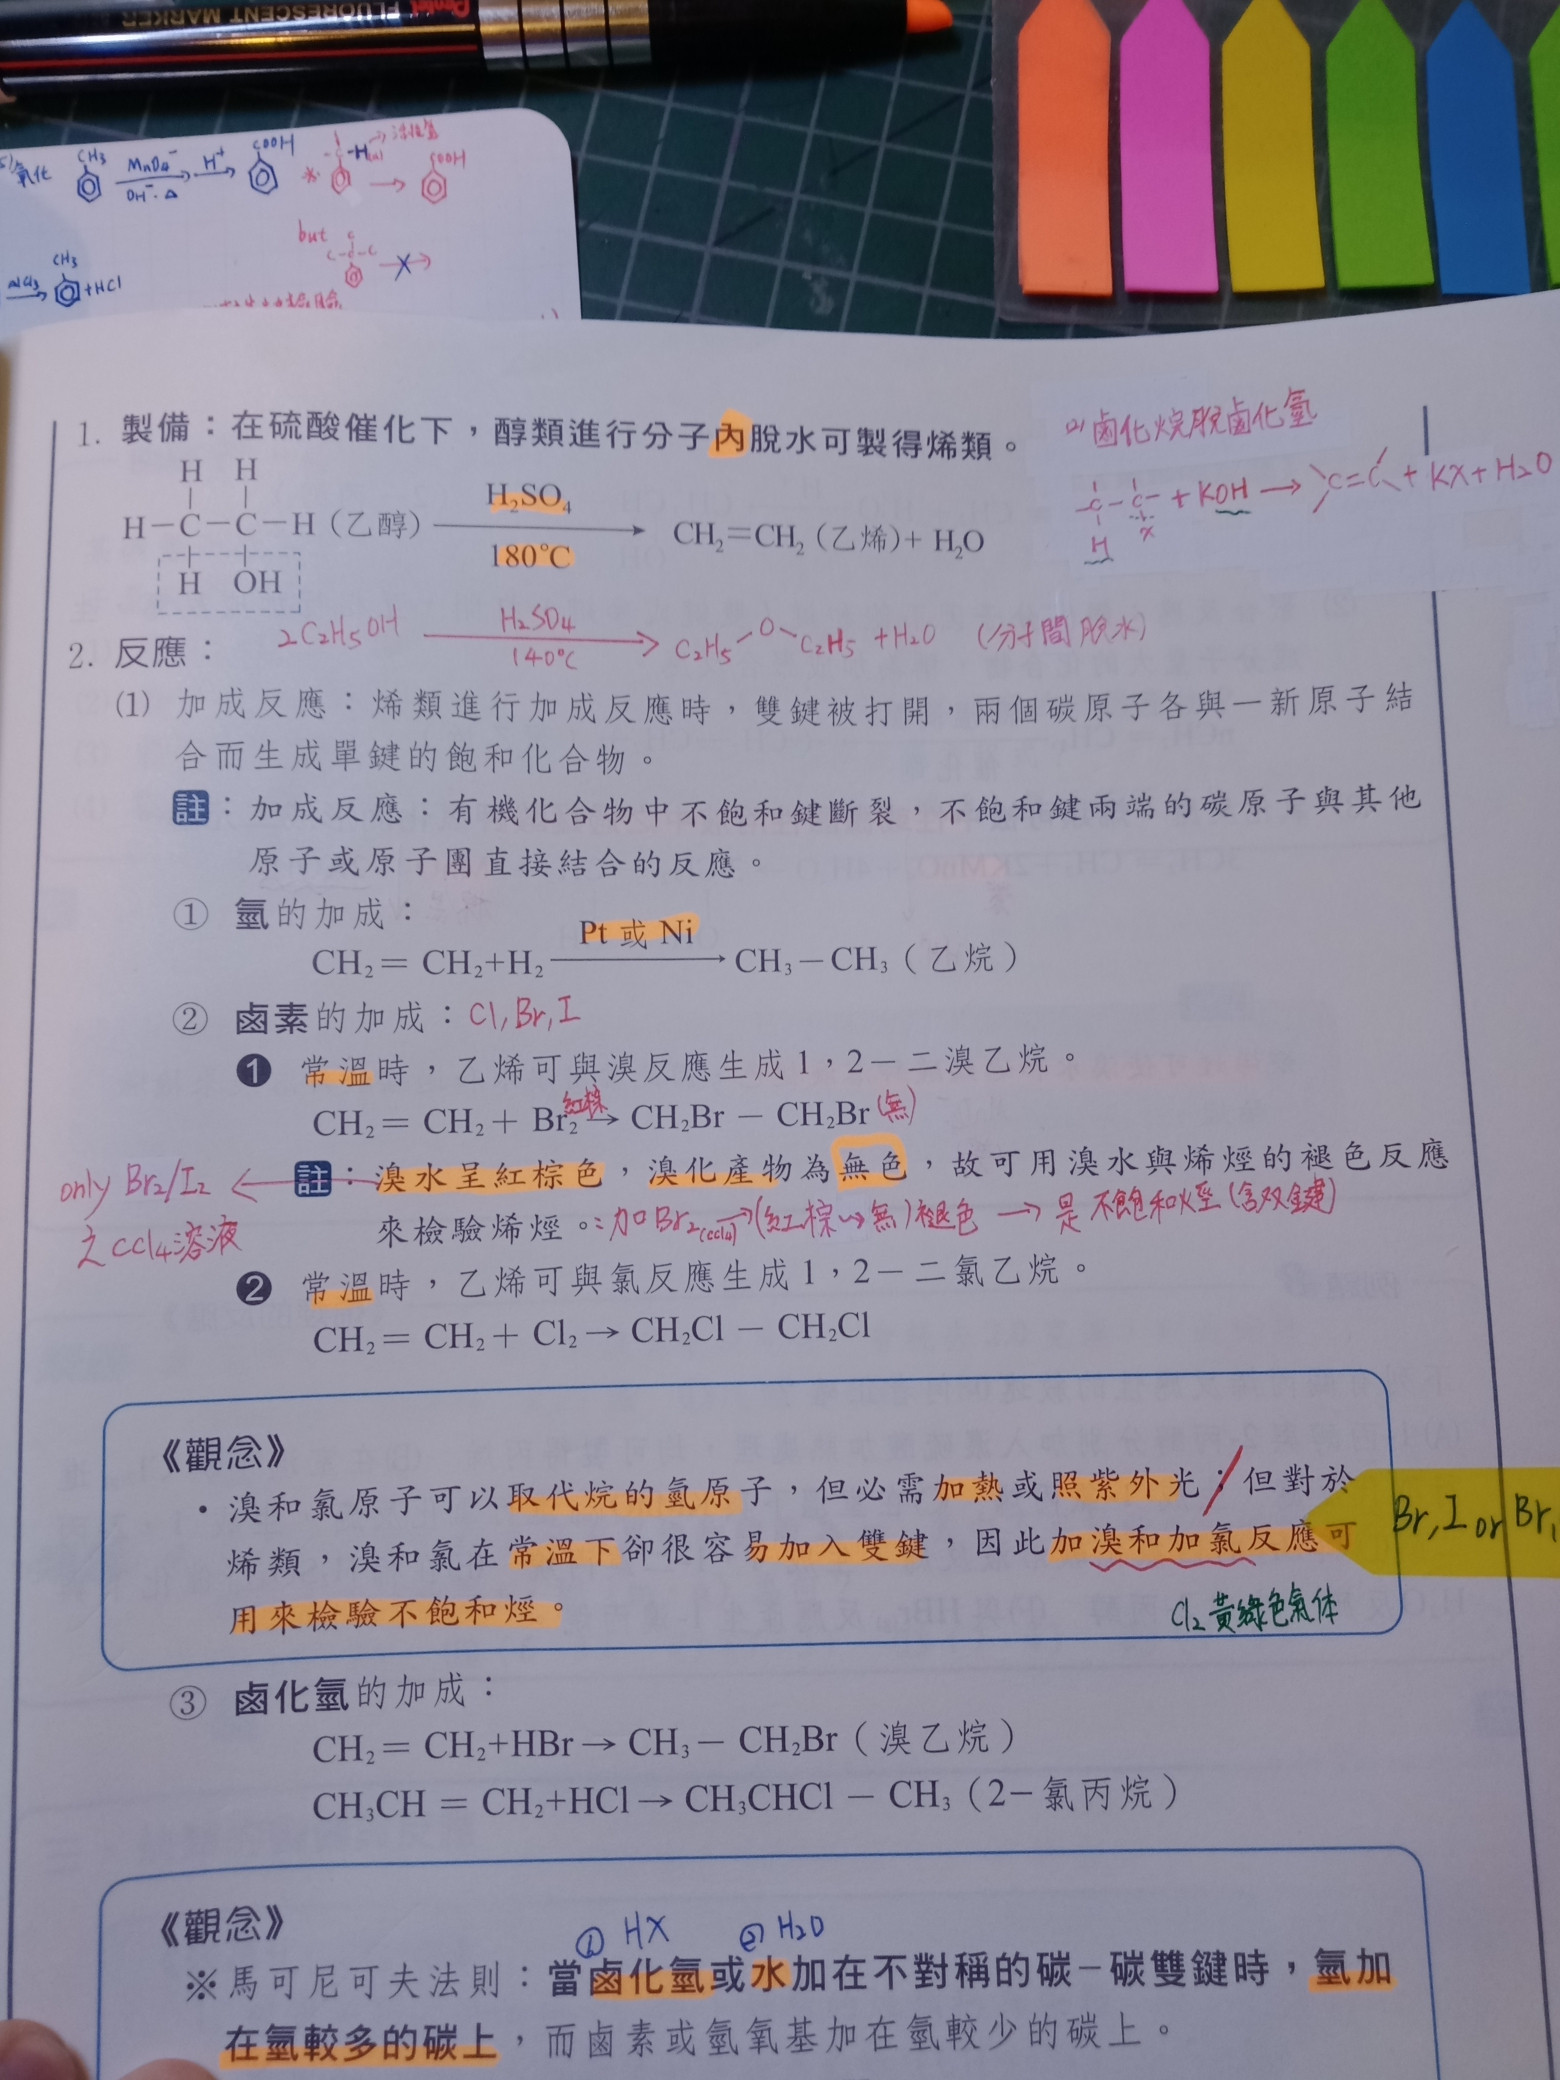 Pentel FLUORESCENT MARKER
氧化 CH₃ MnO₄⁻ OH⁻·△ H⁺ COOH
※ -C-H → 活性氫 → COOH
but C C-C-C
CH₃ +HCl
1. 製備：在硫酸催化下，醇類進行分子內脫水可製得烯類。
H H
H－C－C－H（乙醇） H₂SO₄ 180℃ → CH₂＝CH₂（乙烯）+ H₂O
H OH
(2) 鹵化烷脫鹵化氫
-C-C- + KOH → C=C + KX + H₂O
H X
2C₂H₅OH H₂SO₄ 140℃ → C₂H₅－O－C₂H₅ + H₂O （分子間脫水）
2. 反應：
(1) 加成反應：烯類進行加成反應時，雙鍵被打開，兩個碳原子各與一新原子結
合而生成單鍵的飽和化合物。
註：加成反應：有機化合物中不飽和鍵斷裂，不飽和鍵兩端的碳原子與其他
原子或原子團直接結合的反應。
① 氫的加成：
CH₂＝ CH₂+H₂ Pt 或 Ni → CH₃－CH₃（乙烷）
② 鹵素的加成：Cl, Br, I
❶ 常溫時，乙烯可與溴反應生成1，2－二溴乙烷。
CH₂＝ CH₂ + Br₂ 紅棕 → CH₂Br － CH₂Br (無)
註：溴水呈紅棕色，溴化產物為無色，故可用溴水與烯烴的褪色反應
only Br₂/I₂
之CCl₄溶液
來檢驗烯烴。∴加Br₂(CCl₄) → (紅棕→無)褪色 → 是不飽和烴(含双鍵)
❷ 常溫時，乙烯可與氯反應生成1，2－二氯乙烷。
CH₂＝ CH₂ + Cl₂ → CH₂Cl － CH₂Cl
《觀念》
・溴和氯原子可以取代烷的氫原子，但必需加熱或照紫外光；但對於
烯類，溴和氯在常溫下卻很容易加入雙鍵，因此加溴和加氯反應可
Br, I or Br,
用來檢驗不飽和烴。
Cl₂ 黃綠色氣体
③ 鹵化氫的加成：
CH₂＝ CH₂+HBr → CH₃－ CH₂Br（溴乙烷）
CH₃CH ＝ CH₂+HCl → CH₃CHCl － CH₃（2－氯丙烷）
《觀念》
① HX ② H₂O
※馬可尼可夫法則：當鹵化氫或水加在不對稱的碳－碳雙鍵時，氫加
在氫較多的碳上，而鹵素或氫氧基加在氫較少的碳上。